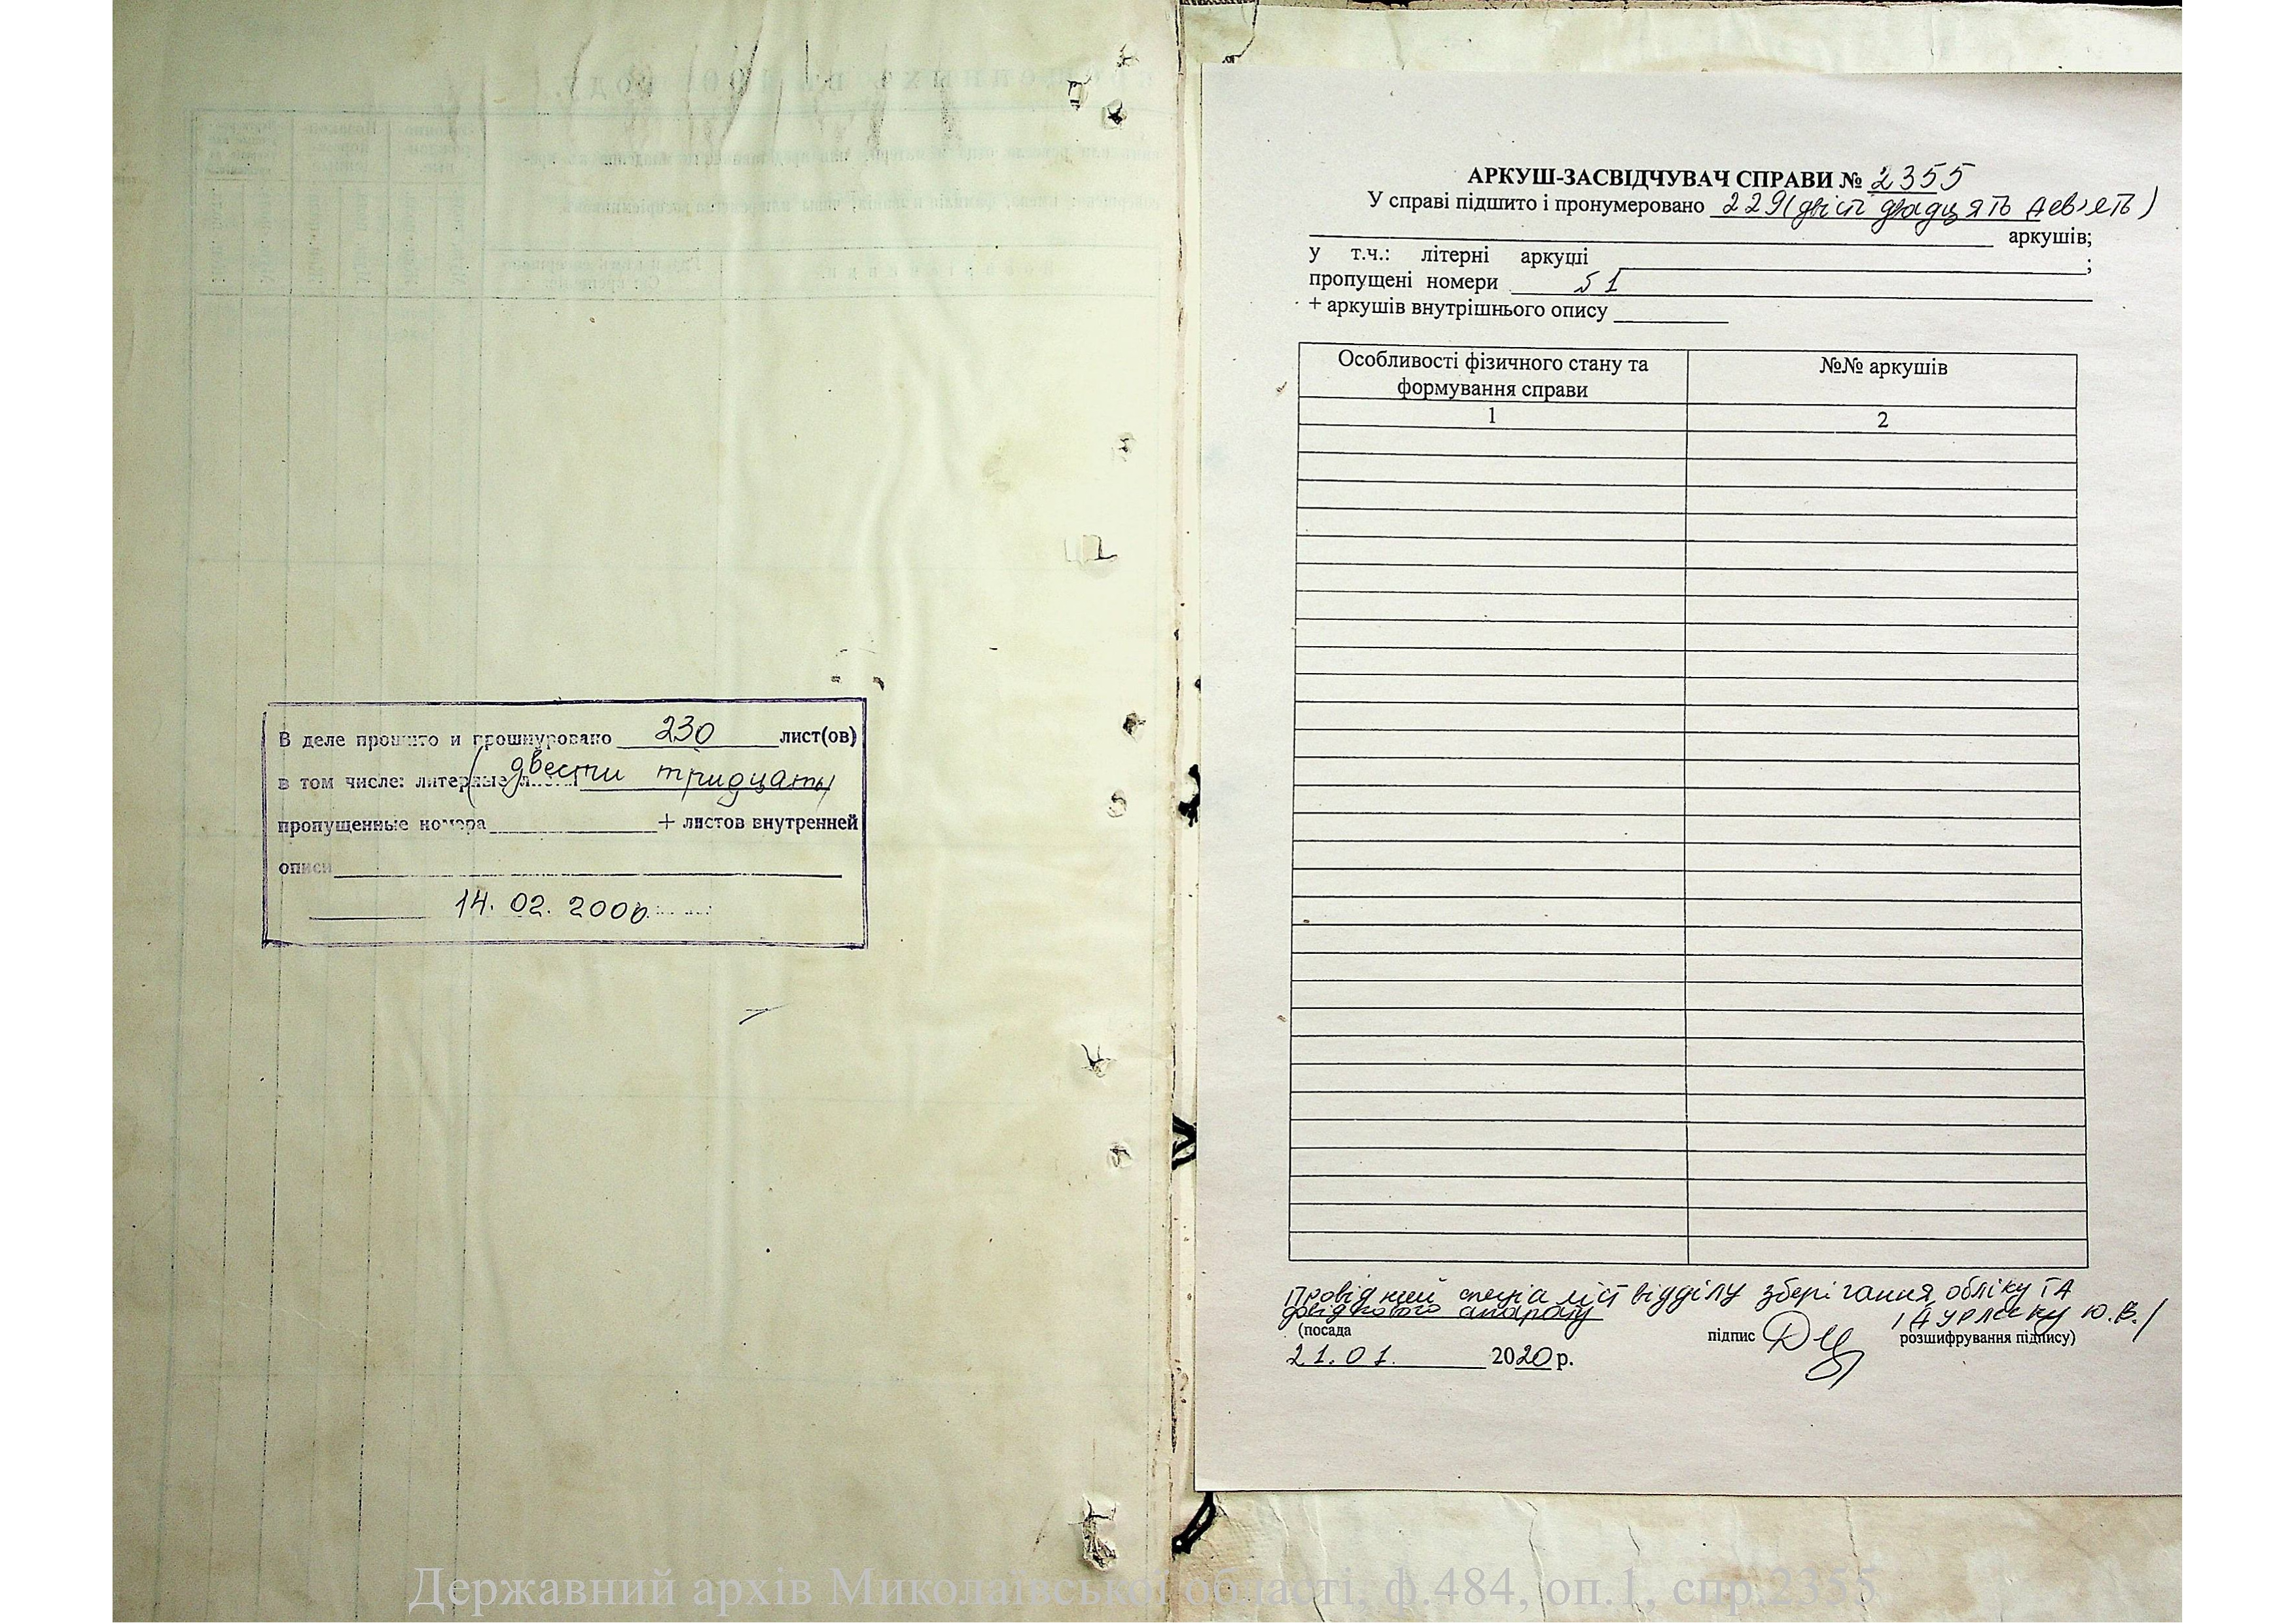 В деле прошито и прошнуровано 230 лист(ов)
в том числе: литерные (двести тридцать)
пропущенные номера + листов внутренней
описи
14. 02. 2006
АРКУШ-ЗАСВІДЧУВАЧ СПРАВИ № 2355
У справі підшито і пронумеровано 229 (двісті двадцять дев'ять)
аркушів;
у т.ч.: літерні аркуші ;
пропущені номери 51
+ аркушів внутрішнього опису
Особливості фізичного стану та
формування справи
№№ аркушів
1 2
Провідний спеціаліст відділу зберігання, обліку та
довідкового апарату
Ю.В./
(посада підпис розшифрування підпису)
21.01. 2020 р.
Державний архів Миколаївської області, ф.484, оп.1, спр.2355